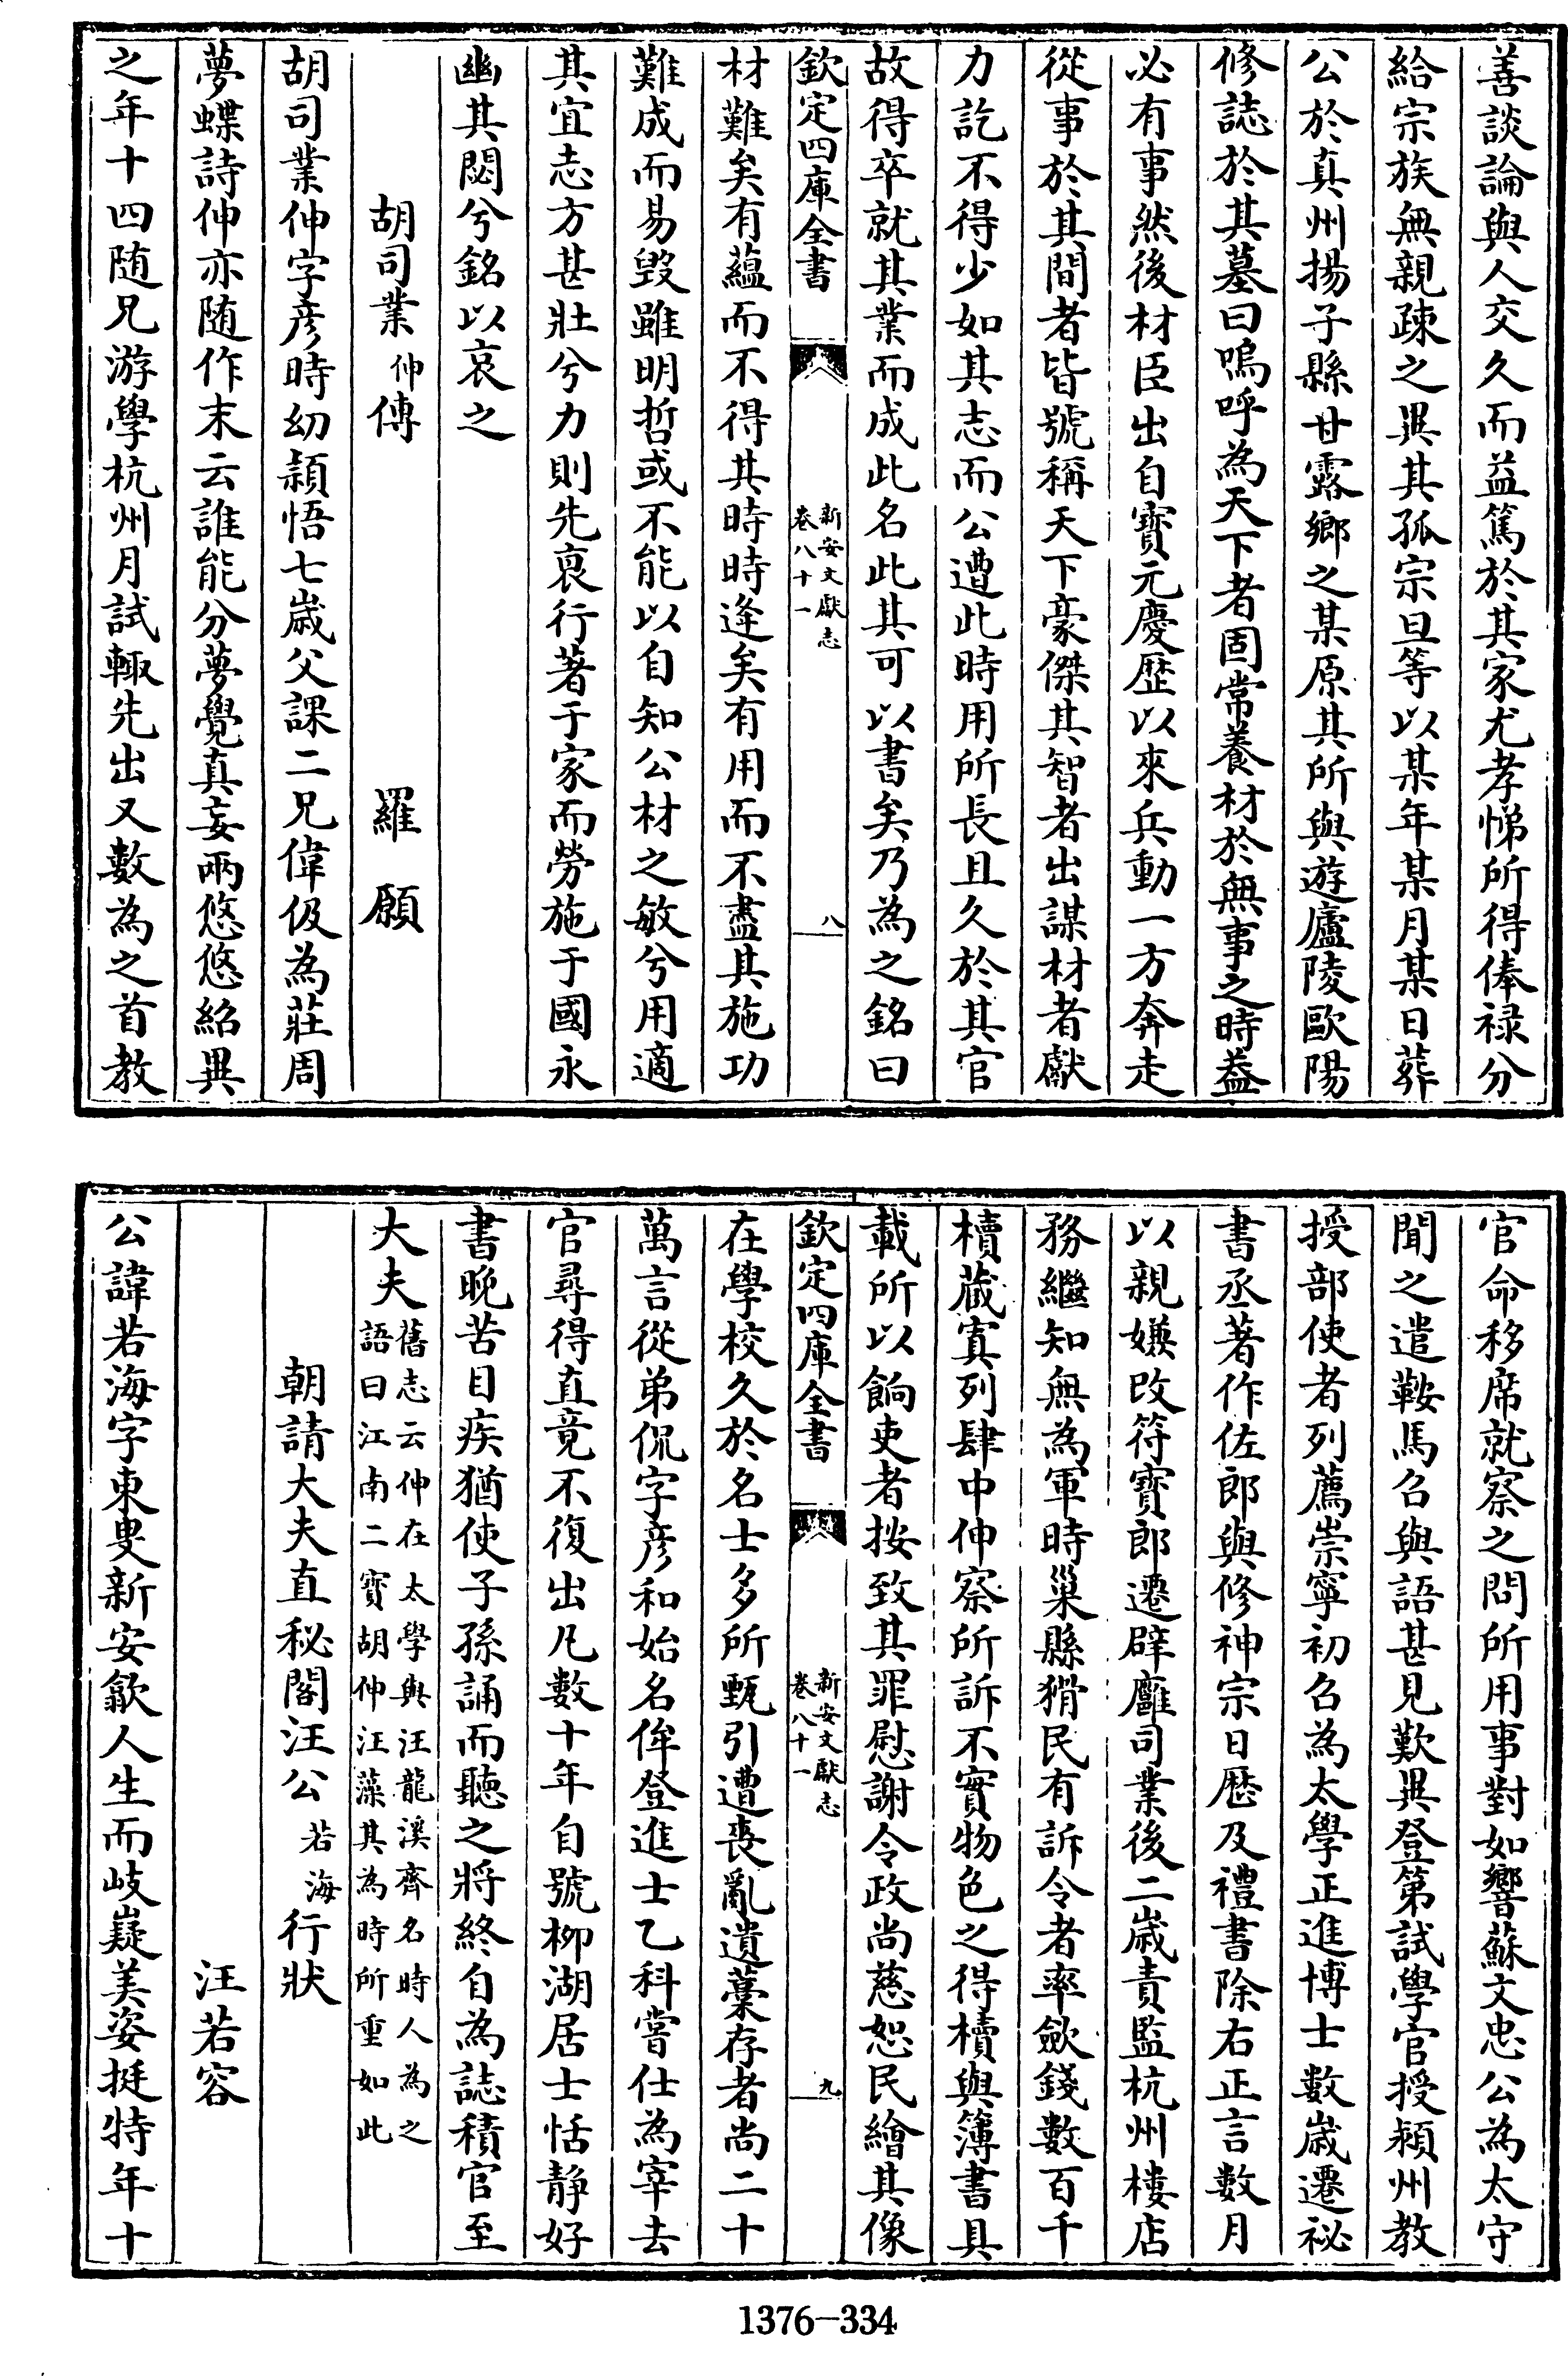 善談論與人交久而益篤於其家尤孝悌所得俸禄分
給宗族無親疎之異其孤宗旦等以某年某月某日葬
公於真州揚子縣甘露鄉之某原其所與遊廬陵歐陽
修誌於其墓曰嗚呼為天下者固常養材於無事之時蓋
必有事然後材臣出自寳元慶歴以來兵動一方奔走
從事於其間者皆號稱天下豪傑其智者出謀材者獻
力訖不得少如其志而公遭此時用所長且久於其官
故得卒就其業而成此名此其可以書矣乃為之銘曰
欽定四庫全書
新安文獻志
卷八十一
八
材難矣有蘊而不得其時時逢矣有用而不盡其施功
難成而易毀雖明哲或不能以自知公材之敏兮用適
其宜志方甚壯兮力則先衰行著于家而勞施于國永
幽其閟兮銘以哀之
胡司業伸傳 羅願
胡司業伸字彦時幼頴悟七歳父課二兄偉伋為莊周
夢蝶詩伸亦随作末云誰能分夢覺真妄兩悠悠紹異
之年十四随兄游學杭州月試輒先出又數為之首教
官命移席就察之問所用事對如響蘇文忠公為太守
聞之遣鞍馬召與語甚見歎異登第試學官授潁州教
授部使者列薦崇寧初召為太學正進博士數歳遷祕
書丞著作佐郎與修神宗日歴及禮書除右正言數月
以親嫌改符寳郎遷辟廱司業後二歳責監杭州樓店
務繼知無為軍時巢縣猾民有訴令者率歛錢數百千
櫝蔵寘列肆中伸察所訴不實物色之得櫝與簿書具
載所以餉吏者按致其罪慰謝令政尚慈恕民繪其像
欽定四庫全書
新安文獻志
卷八十一
九
在學校久於名士多所甄引遭喪亂遺藁存者尚二十
萬言從弟侃字彦和始名侔登進士乙科嘗仕為宰去
官尋得直竟不復出凡數十年自號柳湖居士恬静好
書晩苦目疾猶使子孫誦而聽之將終自為誌積官至
大夫舊志云伸在太學與汪龍溪齊名時人為之
語曰江南二寳胡伸汪藻其為時所重如此
朝請大夫直秘閣汪公若海行狀
汪若容
公諱若海字東叟新安歙人生而岐嶷美姿挺特年十
1376-334